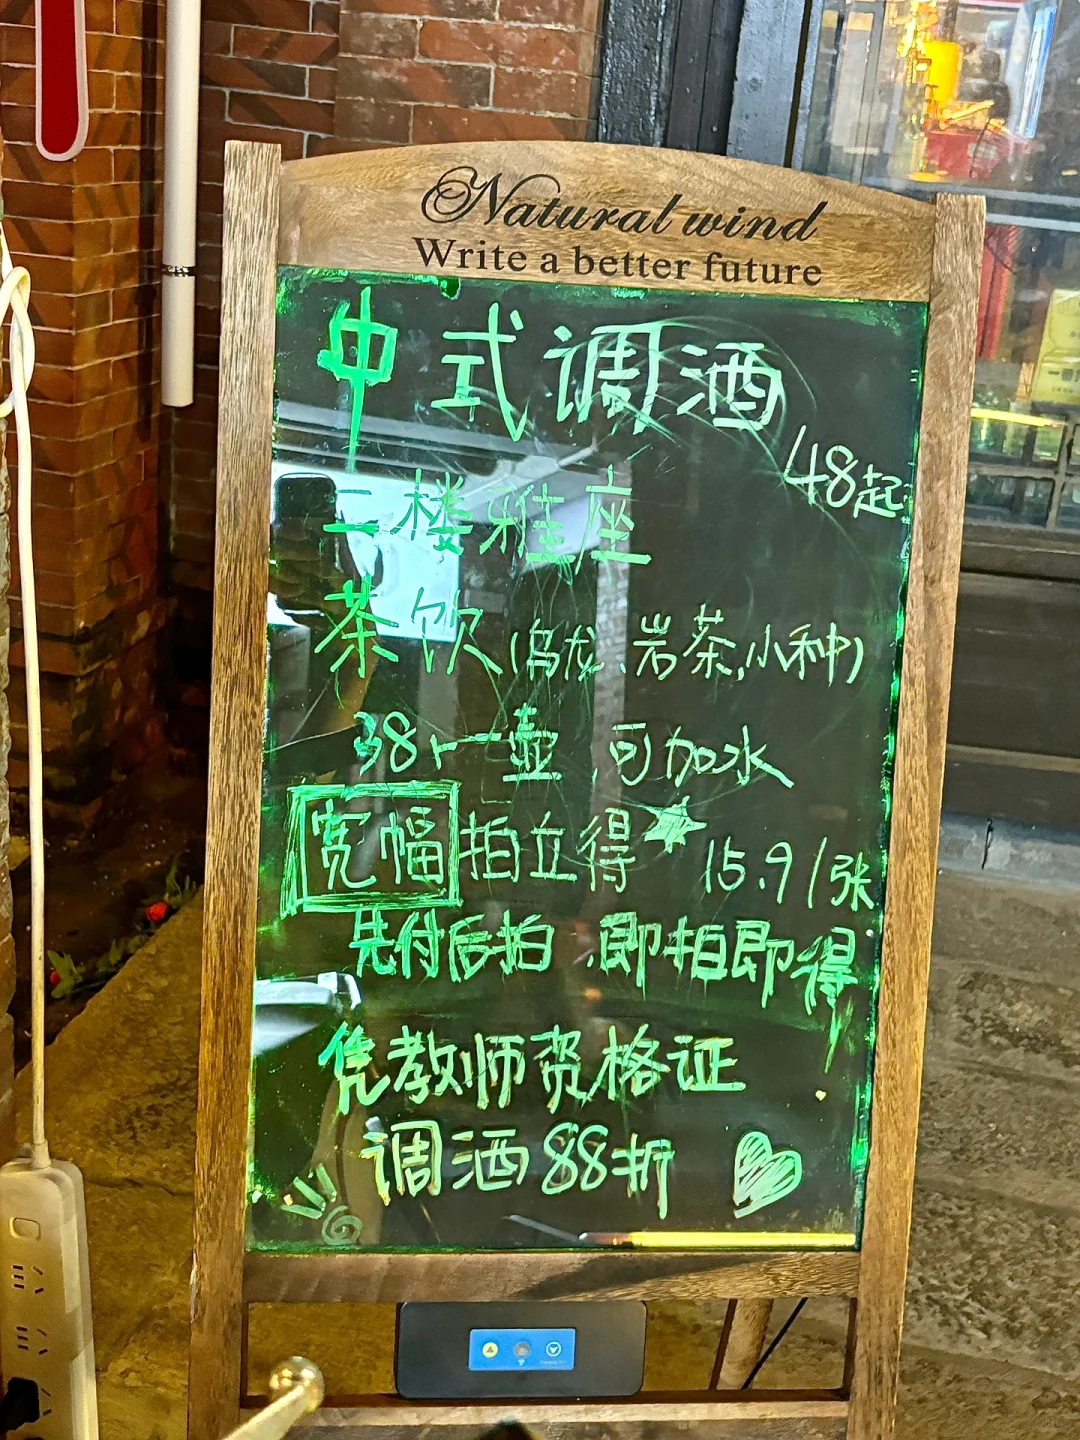 Natural wind
Write a better future
中式调酒
48起
二楼雅座
茶饮(乌龙、岩茶,小种)
38r一壶,可加水
宽幅拍立得 15.9/张
先付后拍,即拍即得
凭教师资格证
调酒88折